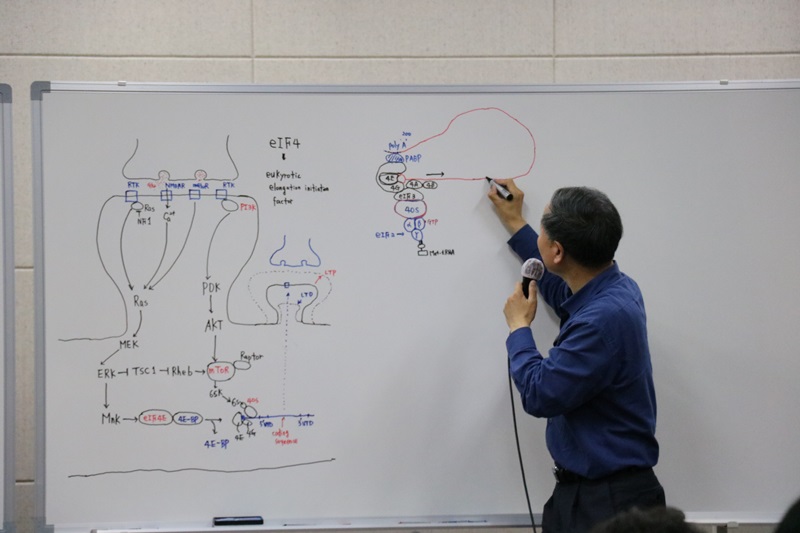 eIF4
eukyrotic
elongation initiation
factor
RTK
NMDAR
mGluR
RTK
Ras
NF1
PI3K
Ras
MEK
ERK TSC1 Rheb mTOR Raptor
PDK
AKT
S6K
Mnk eIF4E 4E-BP
4E-BP
40S
4E 4G
5'UTR
coding
sequence
3'UTR
LTP
LTD
poly A
PABP
4E
4G 4A 4B
eIF3
40S
GTP
eIF2
Met-tRNA